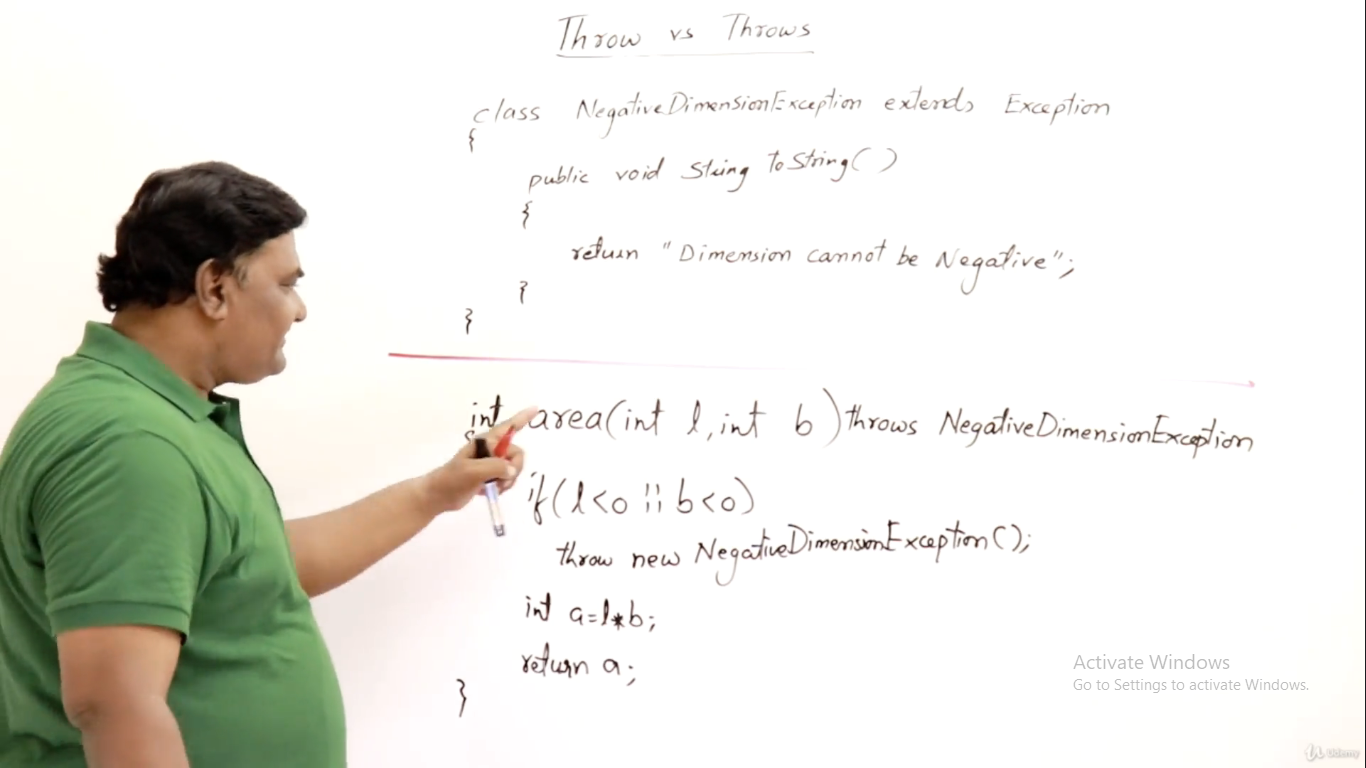 Throw vs Throws
class NegativeDimensionException extends Exception
{
public void String toString( )
{
return "Dimension cannot be Negative";
}
}
int area(int l, int b) throws NegativeDimensionException
{
if(l<0 || b<0)
throw new NegativeDimensionException();
int a=l*b;
return a;
}
Activate Windows
Go to Settings to activate Windows.
Udemy